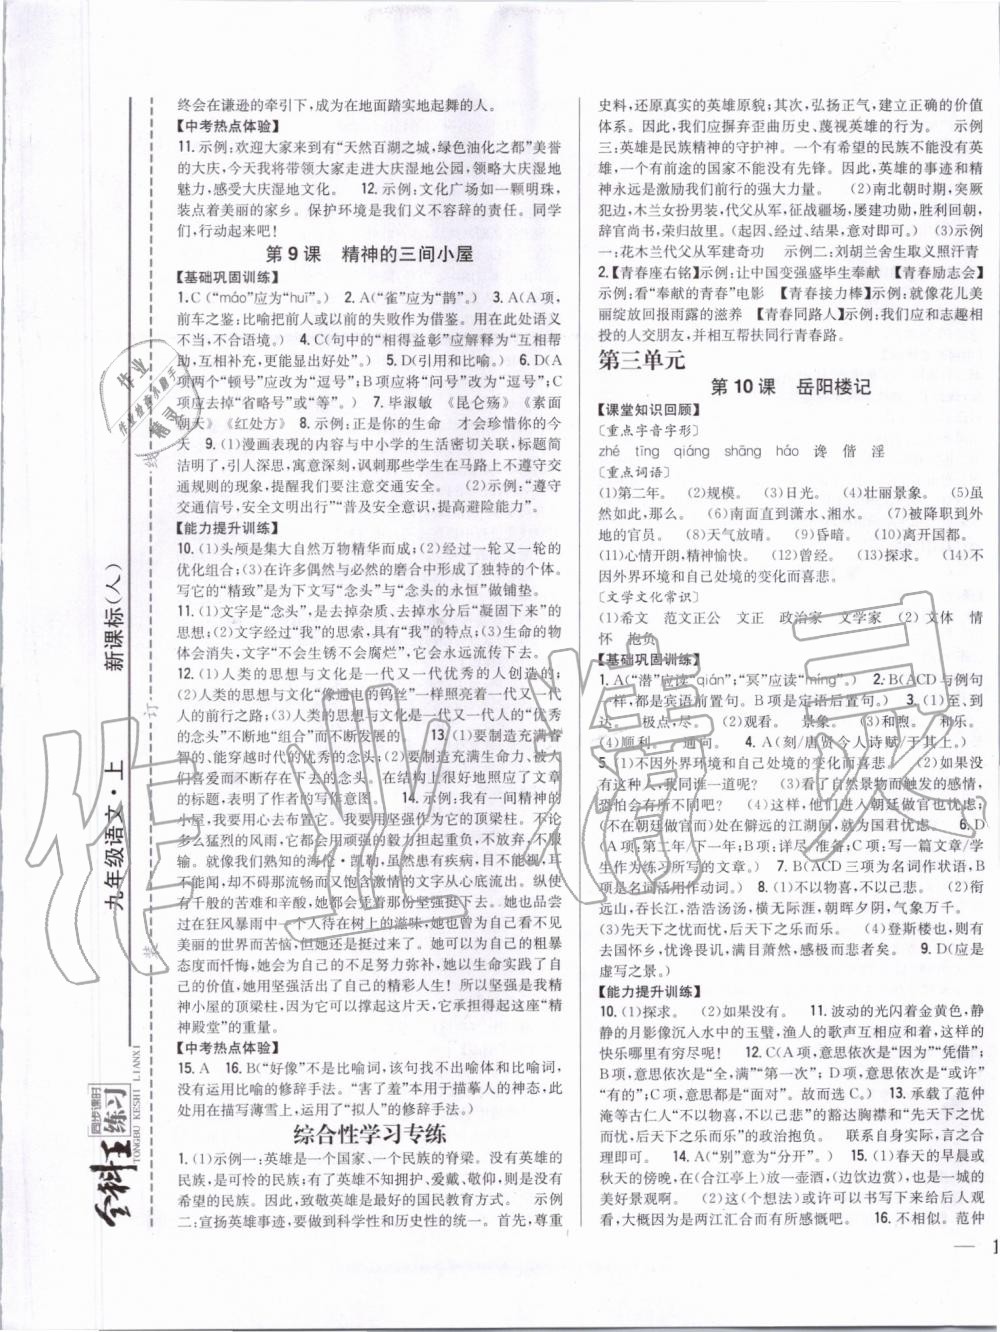 终会在谦逊的牵引下,成为在地面踏实地起舞的人。
【中考热点体验】
11.示例:欢迎大家来到有“天然百湖之城,绿色油化之都”美誉
的大庆,今天我将带领大家走进大庆湿地公园,领略大庆湿地
魅力,感受大庆湿地文化。 12.示例:文化广场如一颗明珠,
装点着美丽的家乡。保护环境是我们义不容辞的责任。同学
们,行动起来吧!
第 9 课 精神的三间小屋
【基础巩固训练】
1.C(“máo”应为“huǐ”。) 2.A(“雀”应为“鹊”。) 3.A(A项,
前车之鉴:比喻把前人或以前的失败作为借鉴。用在此处语义
不当,不合语境。) 4.C(句中的“相得益彰”应解释为“互相帮
助,互相补充,更能显出好处”。) 5.D(引用和比喻。) 6.D(A
项两个“顿号”应改为“逗号”;B项应将“问号”改为“逗号”;C
项应去掉“省略号”或“等”。) 7.毕淑敏 《昆仑殇》 《素面
朝天》 《红处方》 8.示例:正是你的生命 才会珍惜你的今
天 9.(1)漫画表现的内容与中小学的生活密切关联,标题简
洁明了,引人深思,寓意深刻,讽刺那些学生在马路上不遵守交
通规则的现象,提醒我们要注意交通安全。 (2)示例:“遵守
交通信号,安全文明出行”“普及安全意识,提高避险能力”。
【能力提升训练】
10.(1)头颅是集大自然万物精华而成;(2)经过一轮又一轮的
优化组合;(3)在许多偶然与必然的磨合中形成了独特的个体。
写它的“精致”是为下文写“念头”与“念头的永恒”做铺垫。
11.(1)文字是“念头”,是去掉杂质、去掉水分后“凝固下来”的
思想;(2)文字经过“我”的思索,具有“我”的特点;(3)生命的物
体会消失,文字“不会生锈不会腐烂”,它会永远流传下去。
12.(1)人类的思想与文化是一代又一代优秀的人创造的;
(2)人类的思想与文化“像通电的钨丝”一样照亮着一代又一代
人的前行之路;(3)人类的思想与文化是一代又一代人的“优秀
的念头”不断地“组合”而形成的。 13.(1)要制造充满睿
智的、能穿越时代的优秀的念头;(2)要制造充满生命力、被人
们喜爱而不断存在下去的念头。在结构上很好地照应了文章
的标题,表明了作者的写作意图。 14.示例:我有一间精神的
小屋,我要用心去布置它。我要以坚强为它的顶梁柱。不论
多么猛烈的风雨,它都要为我的小屋担起重负,不放弃、不服
输。就像我们最熟悉的海伦·凯勒,虽然患有疾病,目不能视,耳
不能闻,却不间断地将那温情而又饱含激情的文字从心底流出。纵使
有千般的苦难和辛酸,她都可以用她的坚强挺过去。她也品尝
过在狂风暴雨中一个人待在树上的滋味,她也为自己没有看见
美丽的世界而苦恼,但她还是挺过来了。她可以为自己的粗暴
态度而忏悔,她会为自己的不足努力弥补,她以生命实践了自
己的价值,她用坚强活出了自己的精彩人生!所以坚强是我精
神小屋的顶梁柱,因为它可以撑起这片天,它承担得起这座“精
神殿堂”的重量。
【中考热点体验】
15.A 16.B(“好像”不是比喻词,该句找不出喻体和比喻词,
没有运用比喻的修辞手法。“害了羞”来用于描摹人的神态,此
处用在描写薄雪上,运用了“拟人”的修辞手法。)
综合性学习专练
1.(1)示例一:英雄是一个国家、一个民族的脊梁。没有英雄的
民族,是可怜的民族;有了英雄不知拥护、爱戴、敬仰,则是没有
希望的民族。因此,致敬英雄是最好的国民教育方式。 示例
二:宣扬英雄事迹,要做到科学性和历史性的统一。首先,尊重
史料,还原真实的英雄原貌;其次,弘扬正气,建立正确的价值
体系。因此,我们应摒弃歪曲历史、蔑视英雄的行为。 示例
三:英雄是民族精神的守护神。一个有希望的民族不能没有英
雄,一个有前途的国家不能没有先锋。因此,英雄的事迹和精
神永远是激励我们前行的强大力量。 (2)南北朝时期,突厥
犯边,木兰女扮男装,代父从军,征战疆场,屡建功勋,胜利回朝,
辞官尚书,荣归故里。(起因、经过、结果,意对即可。) 示例
一:花木兰代父从军建奇功 示例二:刘胡兰舍生取义照汗青
2.【青春座右铭】示例:让中国变强盛毕生奉献 【青春励志会】
示例:看“奉献的青春”电影 【青春接力棒】示例:就像花儿美
丽绽放回报雨露的滋养 【青春同路人】示例:我们应和志趣相
投的人交朋友,并相互帮扶同行青春路。
第三单元
第 10 课 岳阳楼记
【课堂知识回顾】
〔重点字音字形〕
zhé tīng qiáng shāng háo 谗 偕 淫
〔重点词语〕
(1)第二年。 (2)规模。 (3)日光。 (4)壮丽景象。 (5)虽
然如此,那么。 (6)南面直到潇水、湘水。 (7)被降职到外
地的官员。 (8)天气放晴。 (9)昏暗。 (10)离开国都。
(11)心情开朗,精神愉快。 (12)曾经。 (13)探求。 (14)不
因外界环境和自己处境的变化而喜悲。
〔文学文化常识〕
(1)希文 范文正公 文正 政治家 文学家 (2)文体 情
怀 抱负
【基础巩固训练】
1.A(“潜”应读“qián”;“冥”应读“míng”。) 2.B(ACD与例句
一样,都是宾语前置句。B项是定语后置句。) 3.(1)至,到
达。 极点,尽。 (2)观看。 景象。 (3)和煦。 和乐。
(4)顺利。 通向。 4.A(刻/唐贤今人诗赋/于其上。)
5.(1)不因外界环境和自己处境的变化而喜悲。 (2)如果没
有这种人,我同谁一道呢? (3)看了自然景物而触发的感情,
恐怕会有所不同吧? (4)这样,他们进入朝廷做官也忧虑,
(不在朝廷做官而)处在僻远的江湖间,就为国君忧虑。 6.D
(A项:第二年/下一年;B项:详尽/准备;C项:写一篇文章/学
生作为练习所写的文章。) 7.B(ACD三项为名词作状语,B
项是名词活用作动词。) 8.(1)不以物喜,不以己悲。 (2)衔
远山,吞长江,浩浩汤汤,横无际涯,朝晖夕阴,气象万千。
(3)先天下之忧而忧,后天下之乐而乐。 (4)登斯楼也,则有
去国怀乡,忧谗畏讥,满目萧然,感极而悲者矣。 9.D(应是
虚写之景。)
【能力提升训练】
10.(1)探求。 (2)如果没有。 11.波动的光闪着金黄色,静
静的月影像沉入水中的玉璧,渔人的歌声互相应和,这样的
快乐哪里有穷尽呢! 12.C(A项,意思依次是“因为”“凭借”;
B项,意思依次是“全,满”“第一次”;D项,意思依次是“或许”
“有的”;C项,意思都是“面对”。故而选C。) 13.承载了范仲
淹等古仁人“不以物喜,不以己悲”的豁达胸襟和“先天下之忧
而忧,后天下之乐而乐”的政治抱负。 联系自身实际,言之合
理即可。 14.A(“别”意为“分开”。) 15.(1)春天的早晨或
秋天的傍晚,在(合江亭上)放一壶酒,(边饮边赏),也是一城的
美好景观啊。 (2)这(个想法)或许可以书写下来给后人观
看,大概因为是两江汇合而有所感慨吧。 16.不相似。范仲
九年级语文·上 新课标(人)
装 订 线
全科王 同步课时 练习
TONGBU KESHI LIANXI
作业精灵
— 1